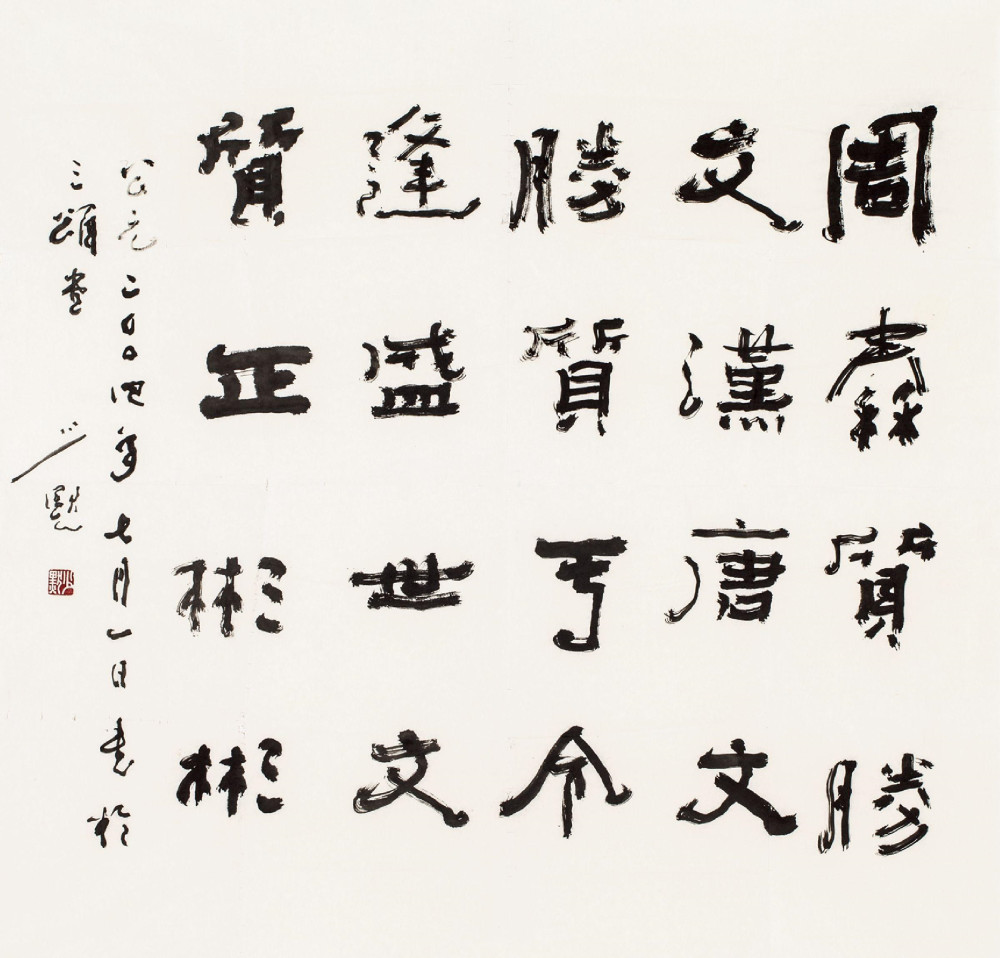 周秦質勝
文漢唐文
勝質于今
逢盛世文
質正彬彬
公元二〇〇四年七月一日書於
三頌堂
少默
少默